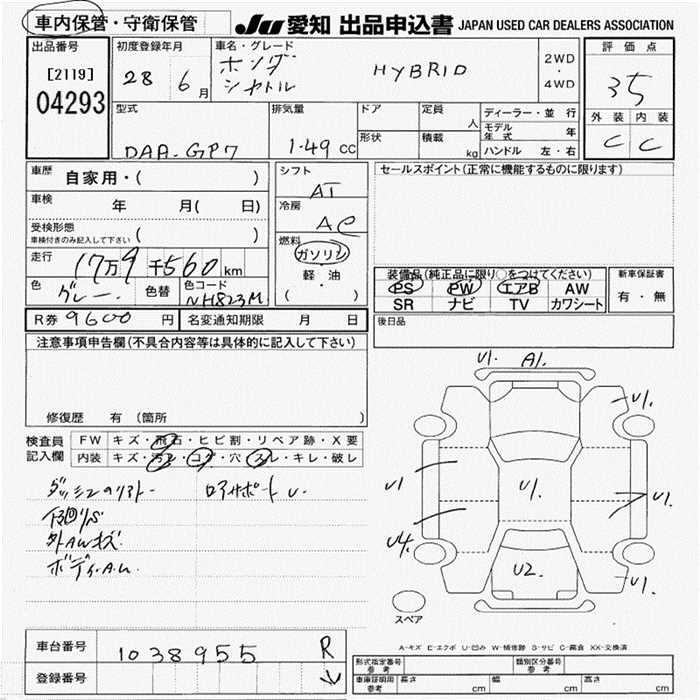 車内保管・守衛保管 JU 愛知 出品申込書 JAPAN USED CAR DEALERS ASSOCIATION
出品番号 初度登録年月 車名・グレード 評価点
[2119] 28 6月 ホンダ HYBRID 2WD・4WD 35
04293 シャトル 外装 内装
型式 排気量 ドア 定員 人 ディーラー・並行 C C
モデル年式 年
形状 積載 kg ハンドル 左・右
DAA-GP7 1.49 cc
車歴 自家用・( ) シフト AT セールスポイント(正常に機能するものに限ります)
車検 年 月( 日) 冷房 AC
受検形態 ( )
車検付きのみ記入して下さい
燃料 ガソリン
走行 17万9千560km 軽・油 装備品(純正品に限り○をつけてください) 新車保証書
色 グレー 色替 色コード NH823M ( ) PS PW エアB AW 有・無
SR ナビ TV カワシート
R券 9600円 名変通知期限 月 日 後日品
注意事項申告欄(不具合内容等は具体的に記入して下さい)
修復歴 有 (箇所 )
検査員記入欄 FW キズ・飛石・ヒビ割・リペア跡・X要
内装 キズ・汚レ・コゲ・穴・スレ・キレ・破レ
外AWキズ
U1. A1.
U1.
U1 U1. U1.
U4.
U2.
U1.
スペア
A-キズ E-エクボ U-凹み W-補修跡 S-サビ C-腐食 XX-交換済
車台番号 1038955 R
登録番号 ↓
形式指定番号 参考 類別区分番号 参考
車庫証明用 参考 長さ cm 幅 cm 高さ cm